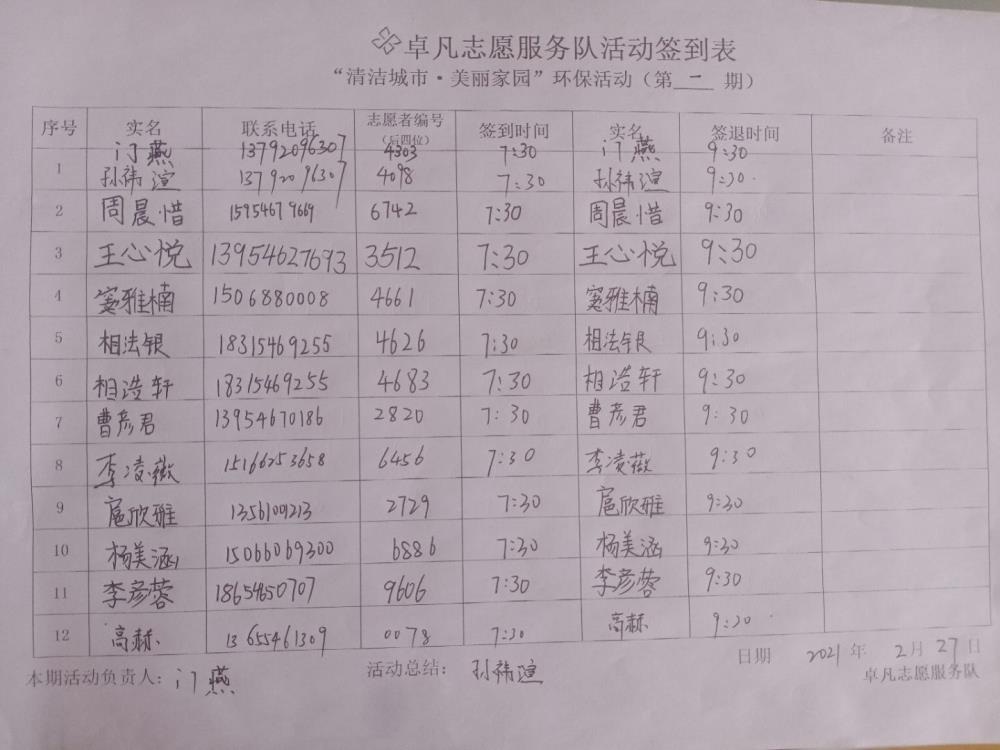 卓凡志愿服务队活动签到表
“清洁城市·美丽家园”环保活动（第 二 期）
序号 实名 联系电话 志愿者编号（后四位） 签到时间 实名 签退时间 备注
1 门燕 13792096307 4303 7:30 门燕 9:30
孙祎渲 13792096307 4098 7:30 孙祎渲 9:30
2 周晨惜 15954679669 6742 7:30 周晨惜 9:30
3 王心悦 13954627693 3512 7:30 王心悦 9:30
4 窦雅楠 1506880008 4661 7:30 窦雅楠 9:30
5 相法银 18315469255 4626 7:30 相法银 9:30
6 相浩轩 18315469255 4683 7:30 相浩轩 9:30
7 曹彦君 13954670186 2820 7:30 曹彦君 9:30
8 李凌薇 15166253658 6456 7:30 李凌薇 9:30
9 扈欣雅 2729 7:30 扈欣雅 9:30
10 杨美涵 15066069300 6886 7:30 杨美涵 9:30
11 李彦蓉 18654650707 9606 7:30 李彦蓉 9:30
12 高赫 13655461309 0078 7:30 高赫 9:30
日期 2021年 2月 27日
本期活动负责人：门燕 活动总结：孙祎渲 卓凡志愿服务队